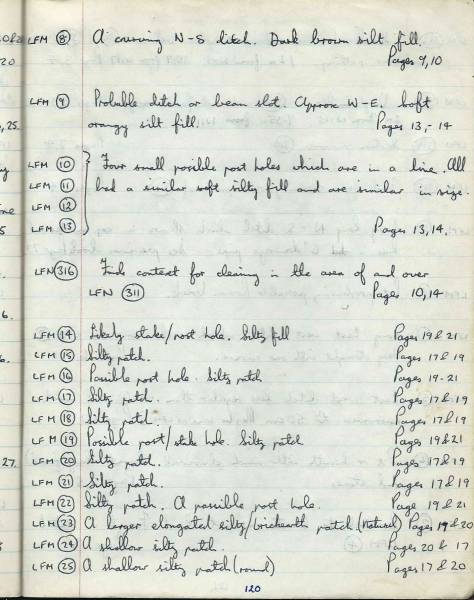 LFM 8 A curving N-S ditch. Dark brown silt fill.
20 Pages 9, 10
LFM 9 Probable ditch or beam slot. Approx W-E. Soft
25. orangy silt fill. Pages 13, - 14
LFM 10 Four small posible post holes which are in a line. All
LFM 11 had a similar soft silty fill and are similar in size.
LFM 12
LFM 13 Pages 13, 14.
LFN 316 Finds context for cleaning in the area of and over
LFN 311 Pages 10, 14
6.
LFM 14 Likely stake/post hole. Silty fill Pages 19 & 21
LFM 15 Silty patch. Pages 17 & 19
LFM 16 Possible post hole. Silty patch Pages 19-21
LFM 17 Silty patch. Pages 17 & 19
LFM 18 Silty patch. Pages 17 & 19
LFM 19 Posible post/stake hole. Silty patch Pages 19 & 21
27. LFM 20 Silty patch. Pages 17 & 19
LFM 21 Silty patch. Pages 17 & 19
LFM 22 Silty patch. A possible post hole. Page 19 & 21
LFM 23 A larger elongated silty/brickearth patch (natural) Pages 19 & 20
LFM 24 A shallow silty patch. Pages 20 & 17
LFM 25 A shallow silty patch (round) Pages 17 & 20
120